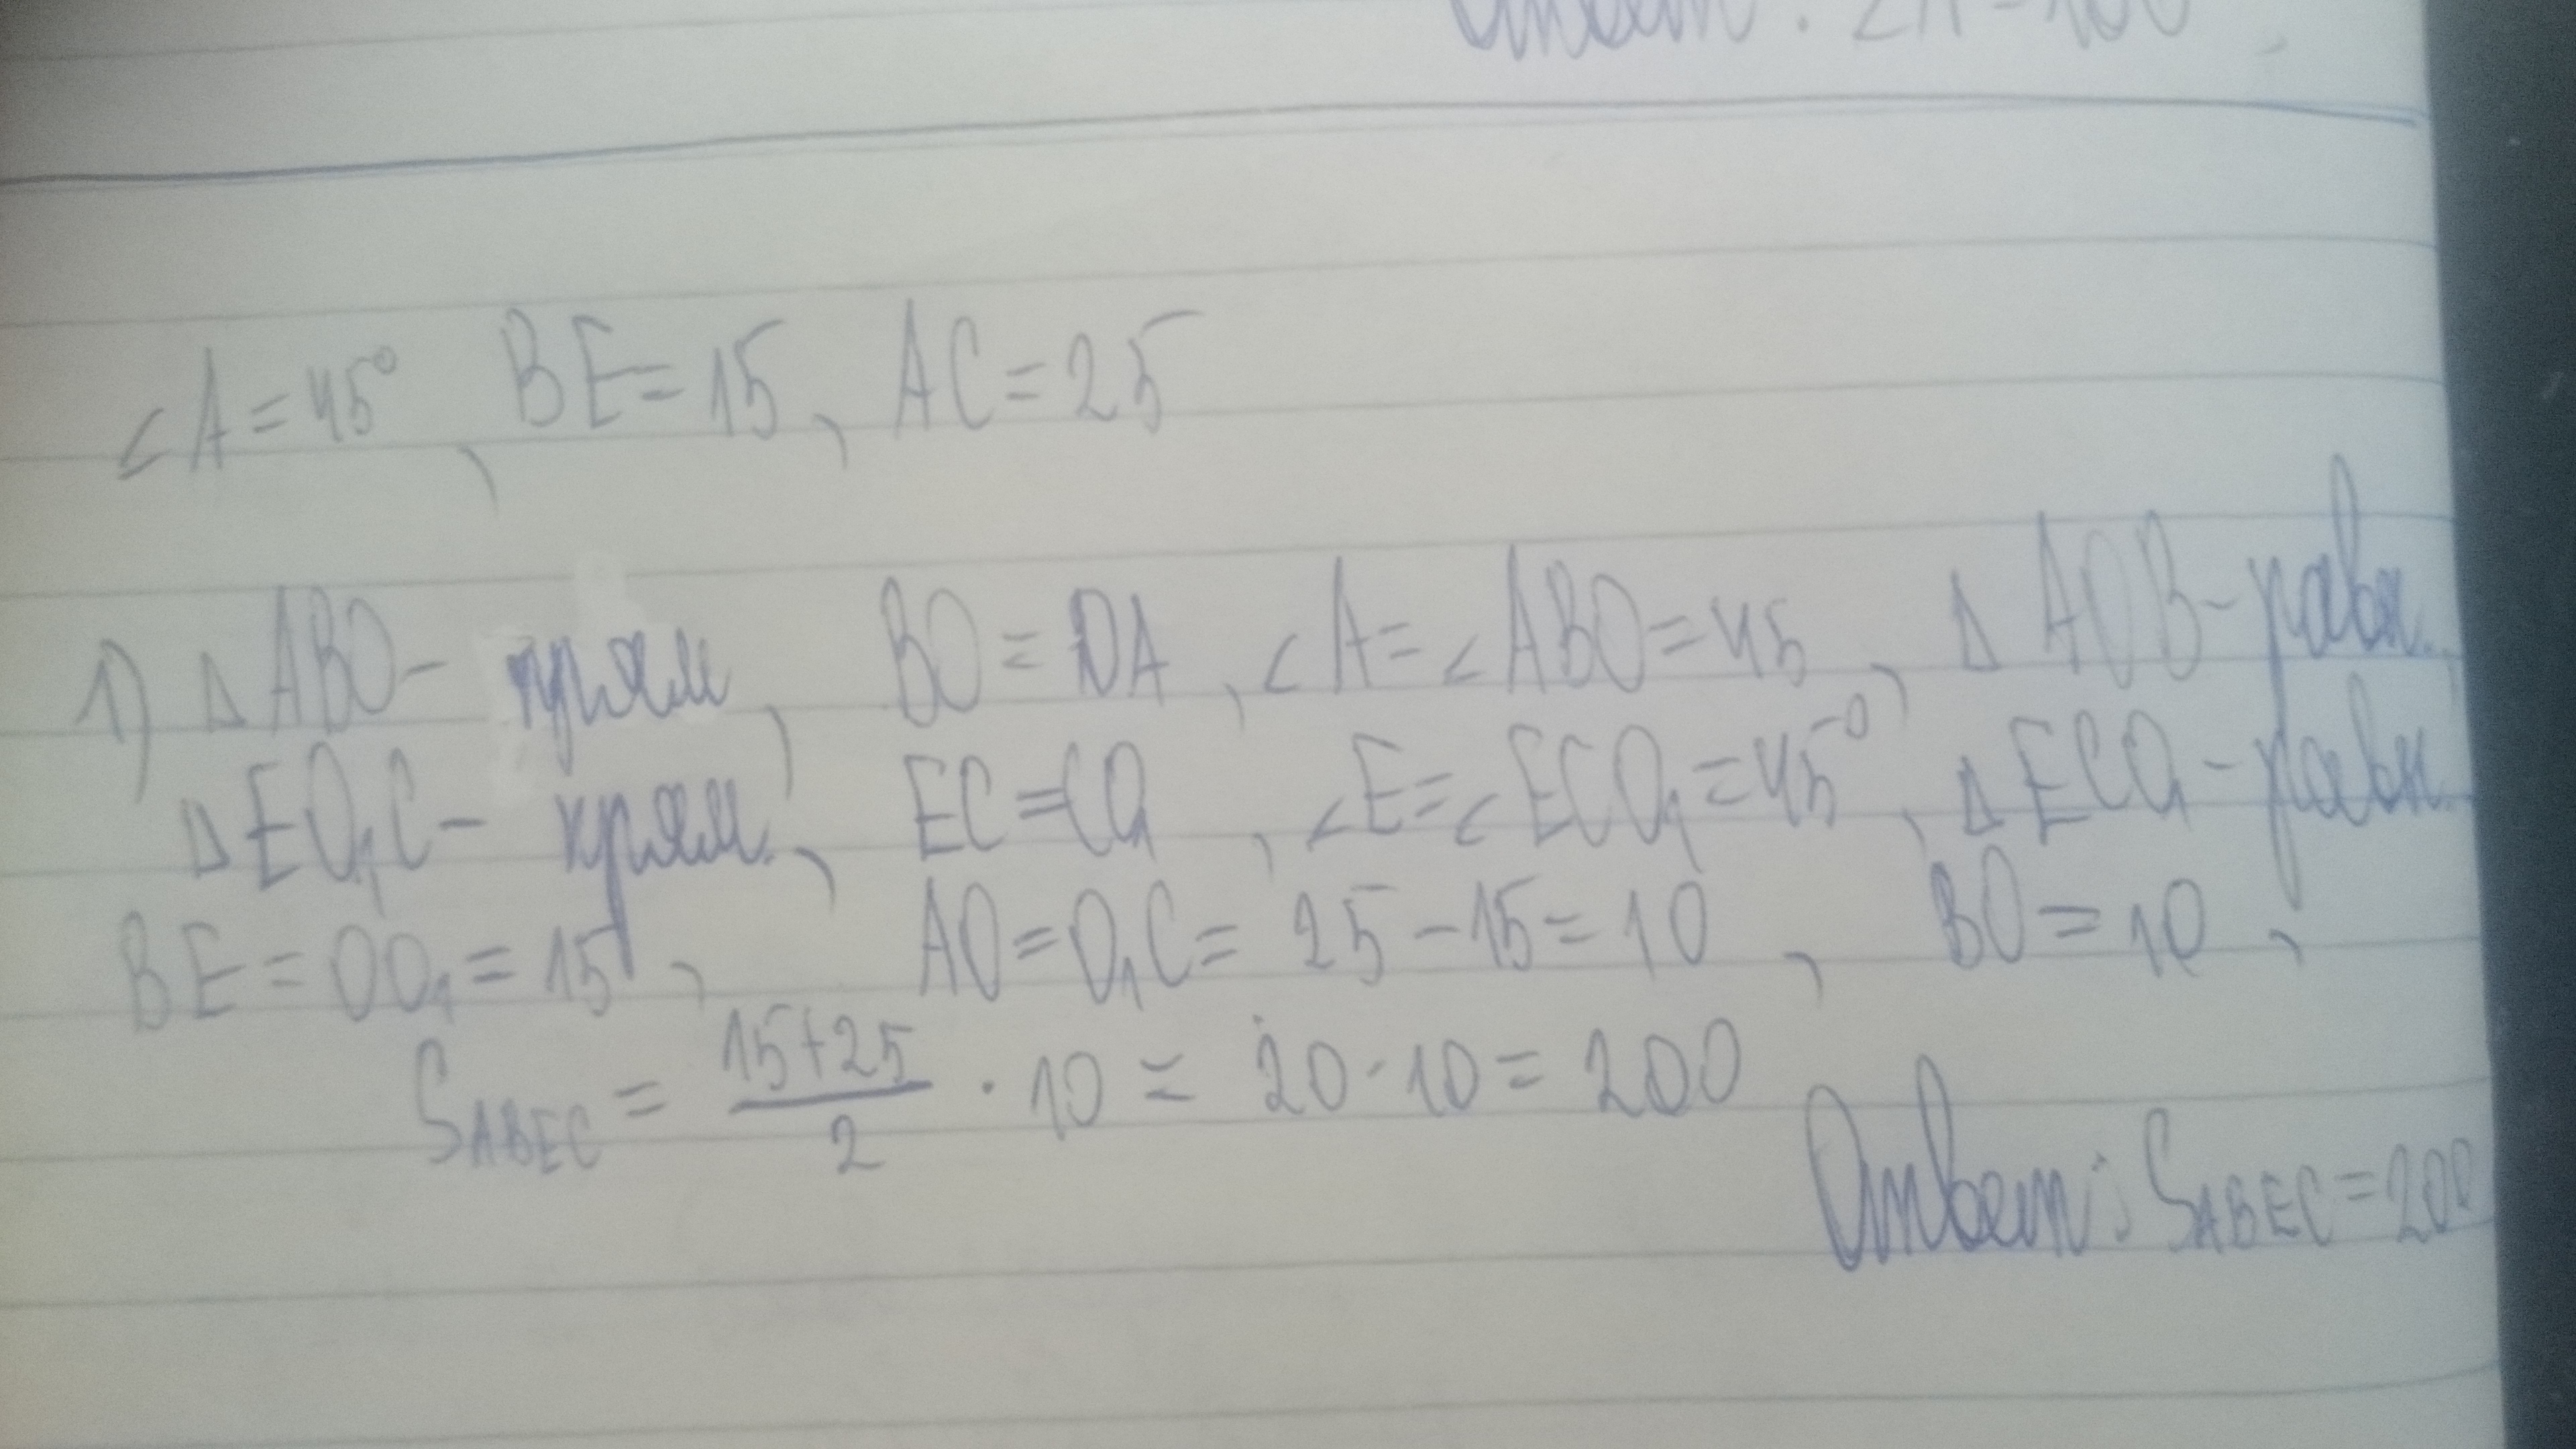 Ответ:
∠A=45°, BE=15, AC=25
1) △ABO- прям, BO=OA, ∠A=∠ABO=45, △AOB-равн.
△EO₁C- прям., EC=CO₁, ∠E=∠ECO₁=45°, △ECO₁-равн.
BE=OO₁=15, AO=O₁C= 25-15=10, BO=10,
S_ABEC = (15+25)/2 · 10 = 20·10=200
Ответ: S_ABEC=200